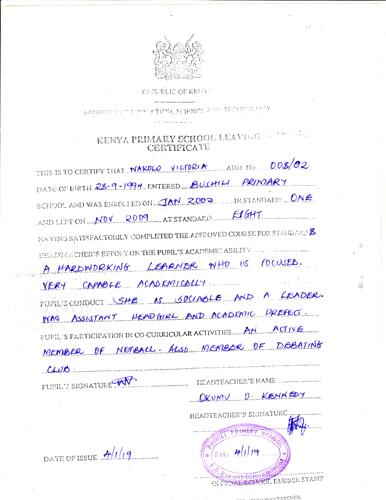 REPUBLIC OF KENYA
MINISTRY OF EDUCATION, SCIENCE AND TECHNOLOGY
KENYA PRIMARY SCHOOL LEAVING
CERTIFICATE
THIS IS TO CERTIFY THAT NAKOLO VICTORIA ADM No. 008/02
DATE OF BIRTH 28-9-1994 ENTERED BUSHILI PRIMARY
SCHOOL AND WAS ENROLLED ON JAN 2002 IN STANDARD ONE
AND LEFT ON NOV 2009 AT STANDARD EIGHT
HAVING SATISFACTORILY COMPLETED THE APPROVED COURSE FOR STANDARD 8
HEADTEACHER'S REPORT ON THE PUPIL'S ACADEMIC ABILITY
A HARDWORKING LEARNER WHO IS FOCUSED.
VERY CAPABLE ACADEMICALLY.
PUPIL'S CONDUCT SHE IS SOCIABLE AND A LEADER.
WAS ASSISTANT HEADGIRL AND ACADEMIC PREFECT.
PUPIL'S PARTICIPATION IN CO-CURRICULAR ACTIVITIES AN ACTIVE
MEMBER OF NETBALL. ALSO MEMBER OF DEBATING
CLUB.
PUPIL'S SIGNATURE
HEADTEACHER'S NAME
OKUMU D. KENNEDY
HEADTEACHER'S SIGNATURE
PRIMARY SCHOOL
DATE OF ISSUE 4/1/19
Date: 4/1/19
OFFICIAL SCHOOL RUBBER STAMP